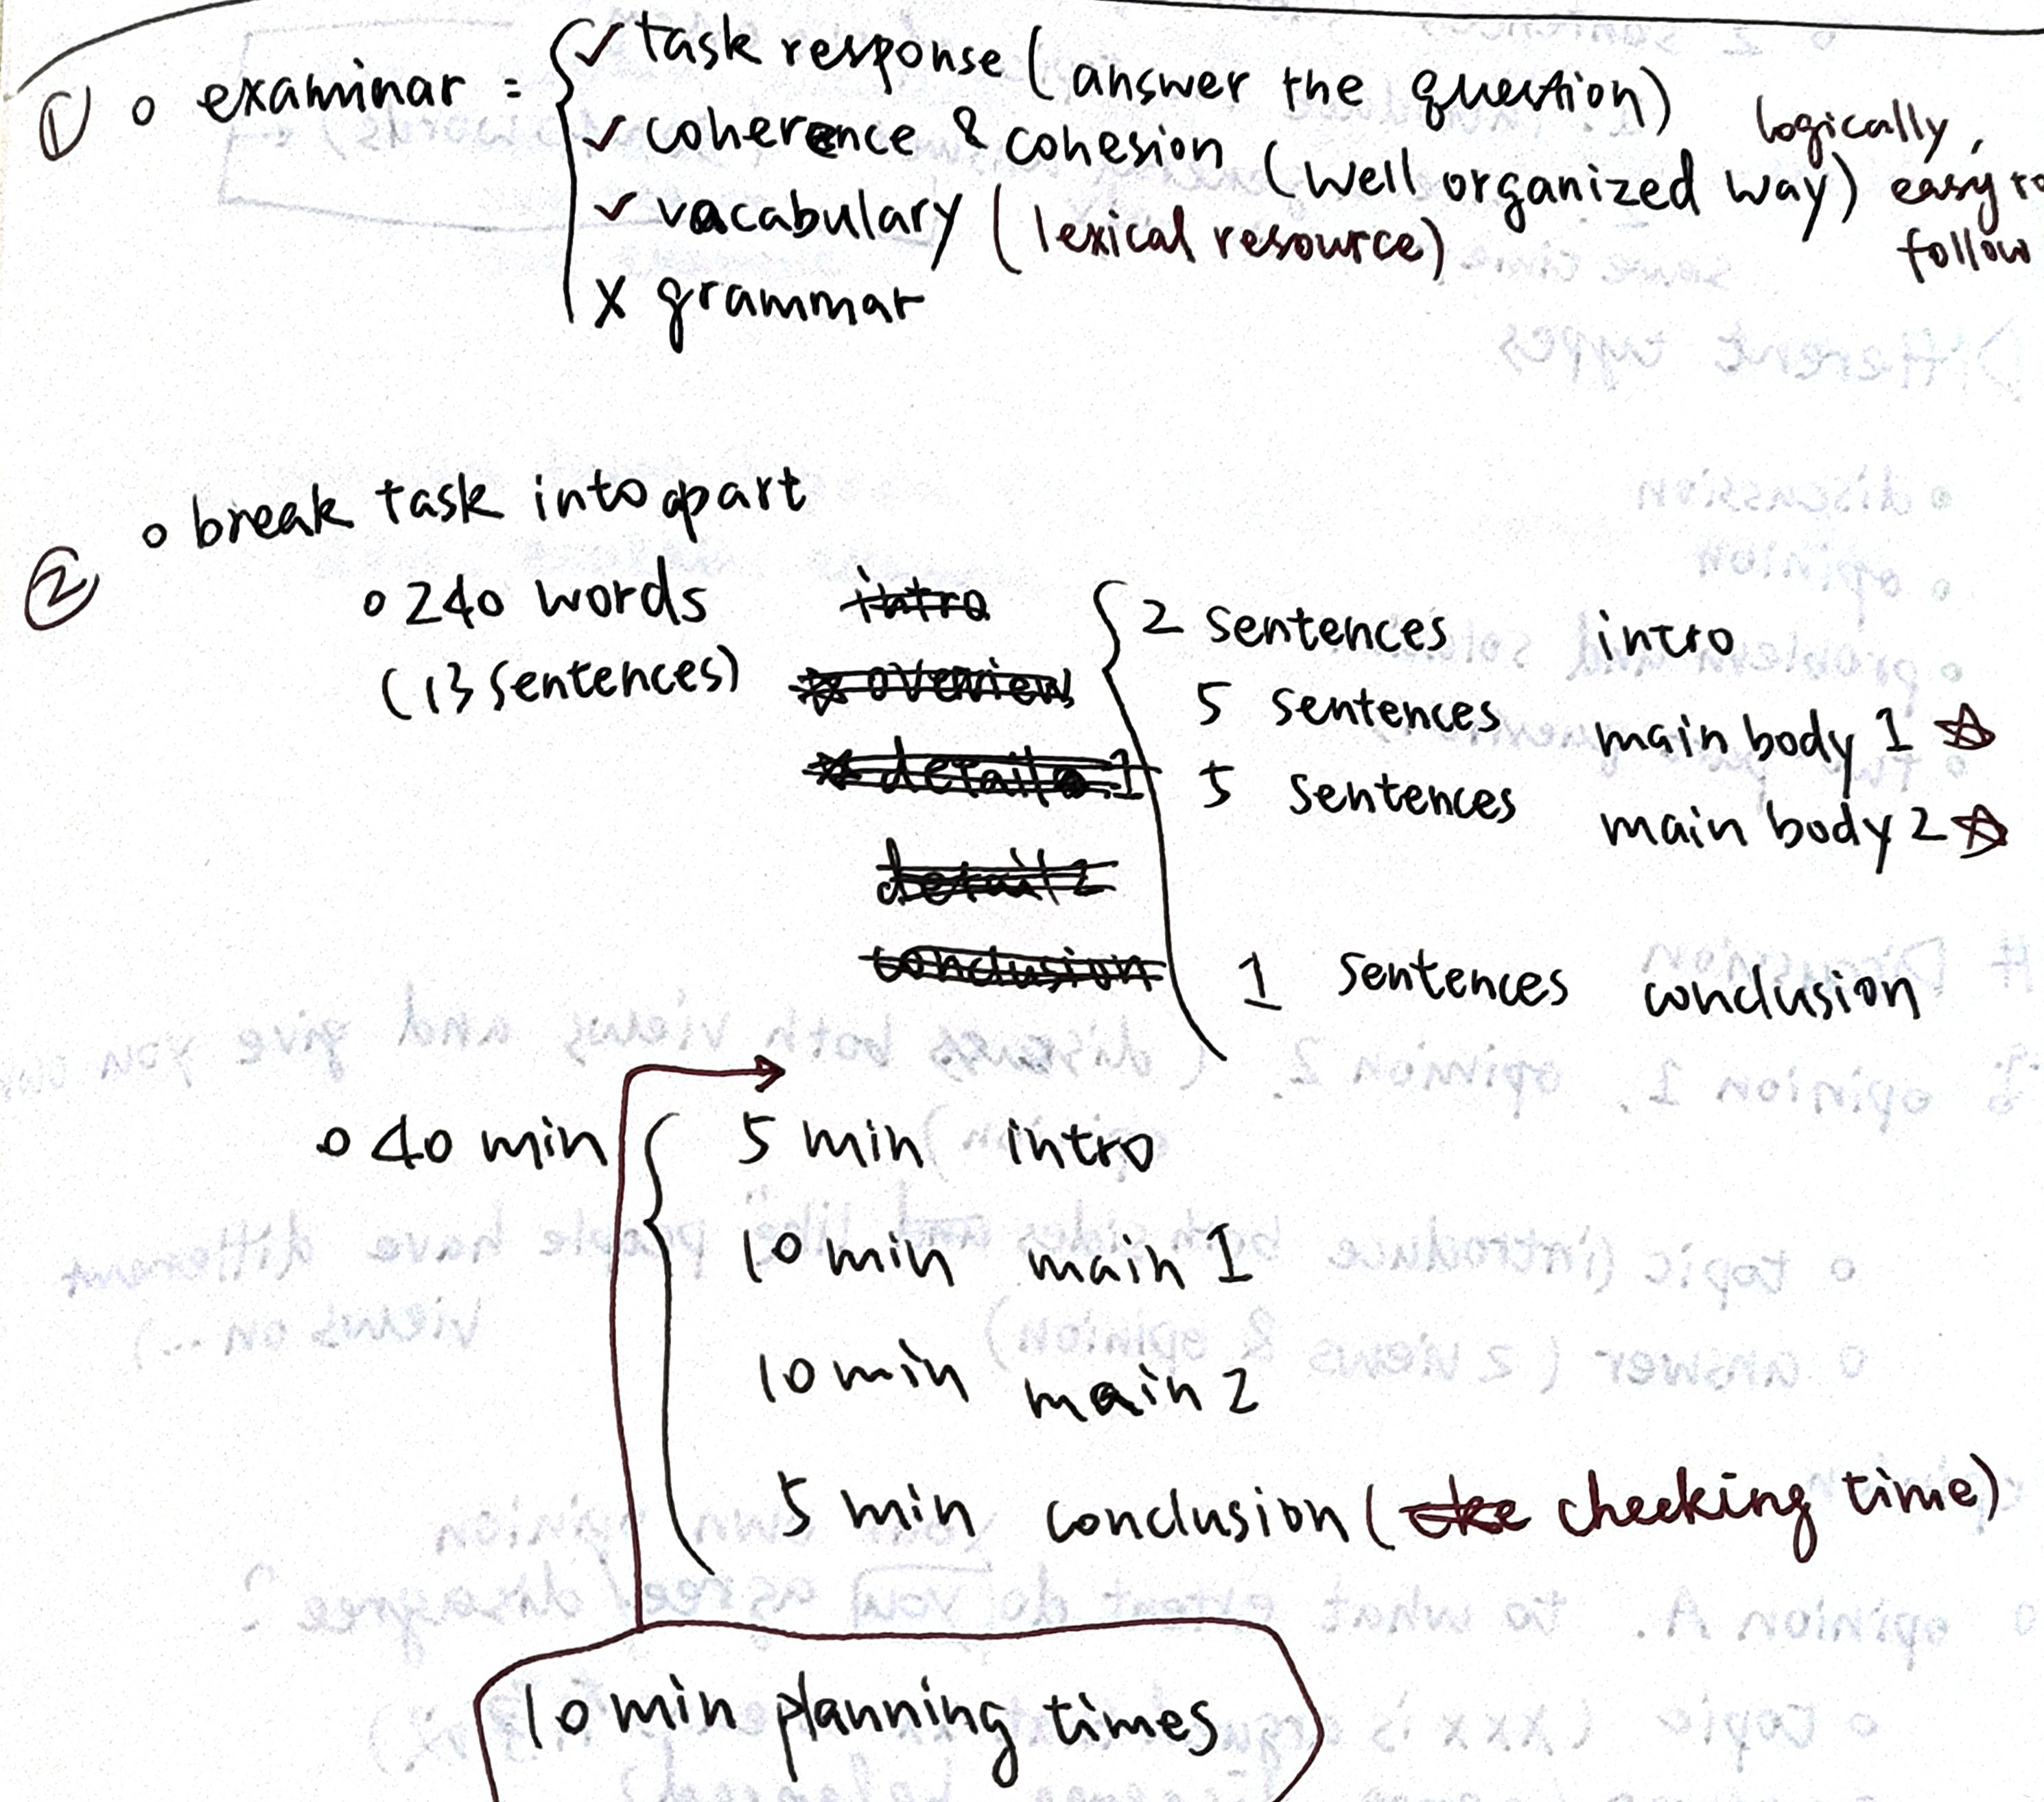 ① o examinar = ✓ task response (answer the question)
✓ coherence & cohesion (well organized way) logically, easy to follow
✓ vacabulary (lexical resource)
X grammar
② o break task into apart
o 240 words
(13 sentences)
intro
overview
detail 1
detail 2
conclusion
2 sentences intro
5 sentences main body 1 ☆
5 sentences main body 2 ☆
1 sentences conclusion
o 40 min
5 min intro
10 min main 1
10 min main 2
5 min conclusion (checking time)
10 min planning times